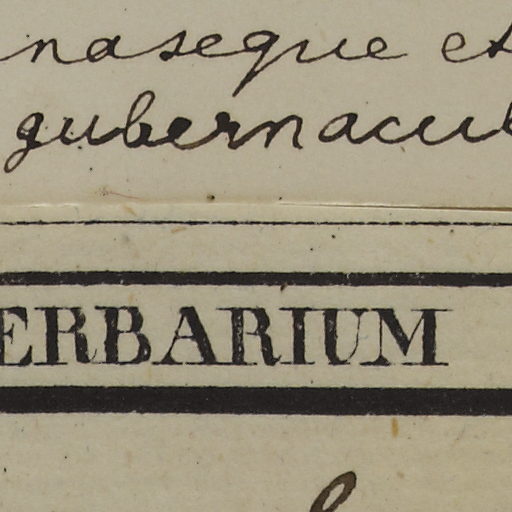 naseque et
gubernacul
ERBARIUM